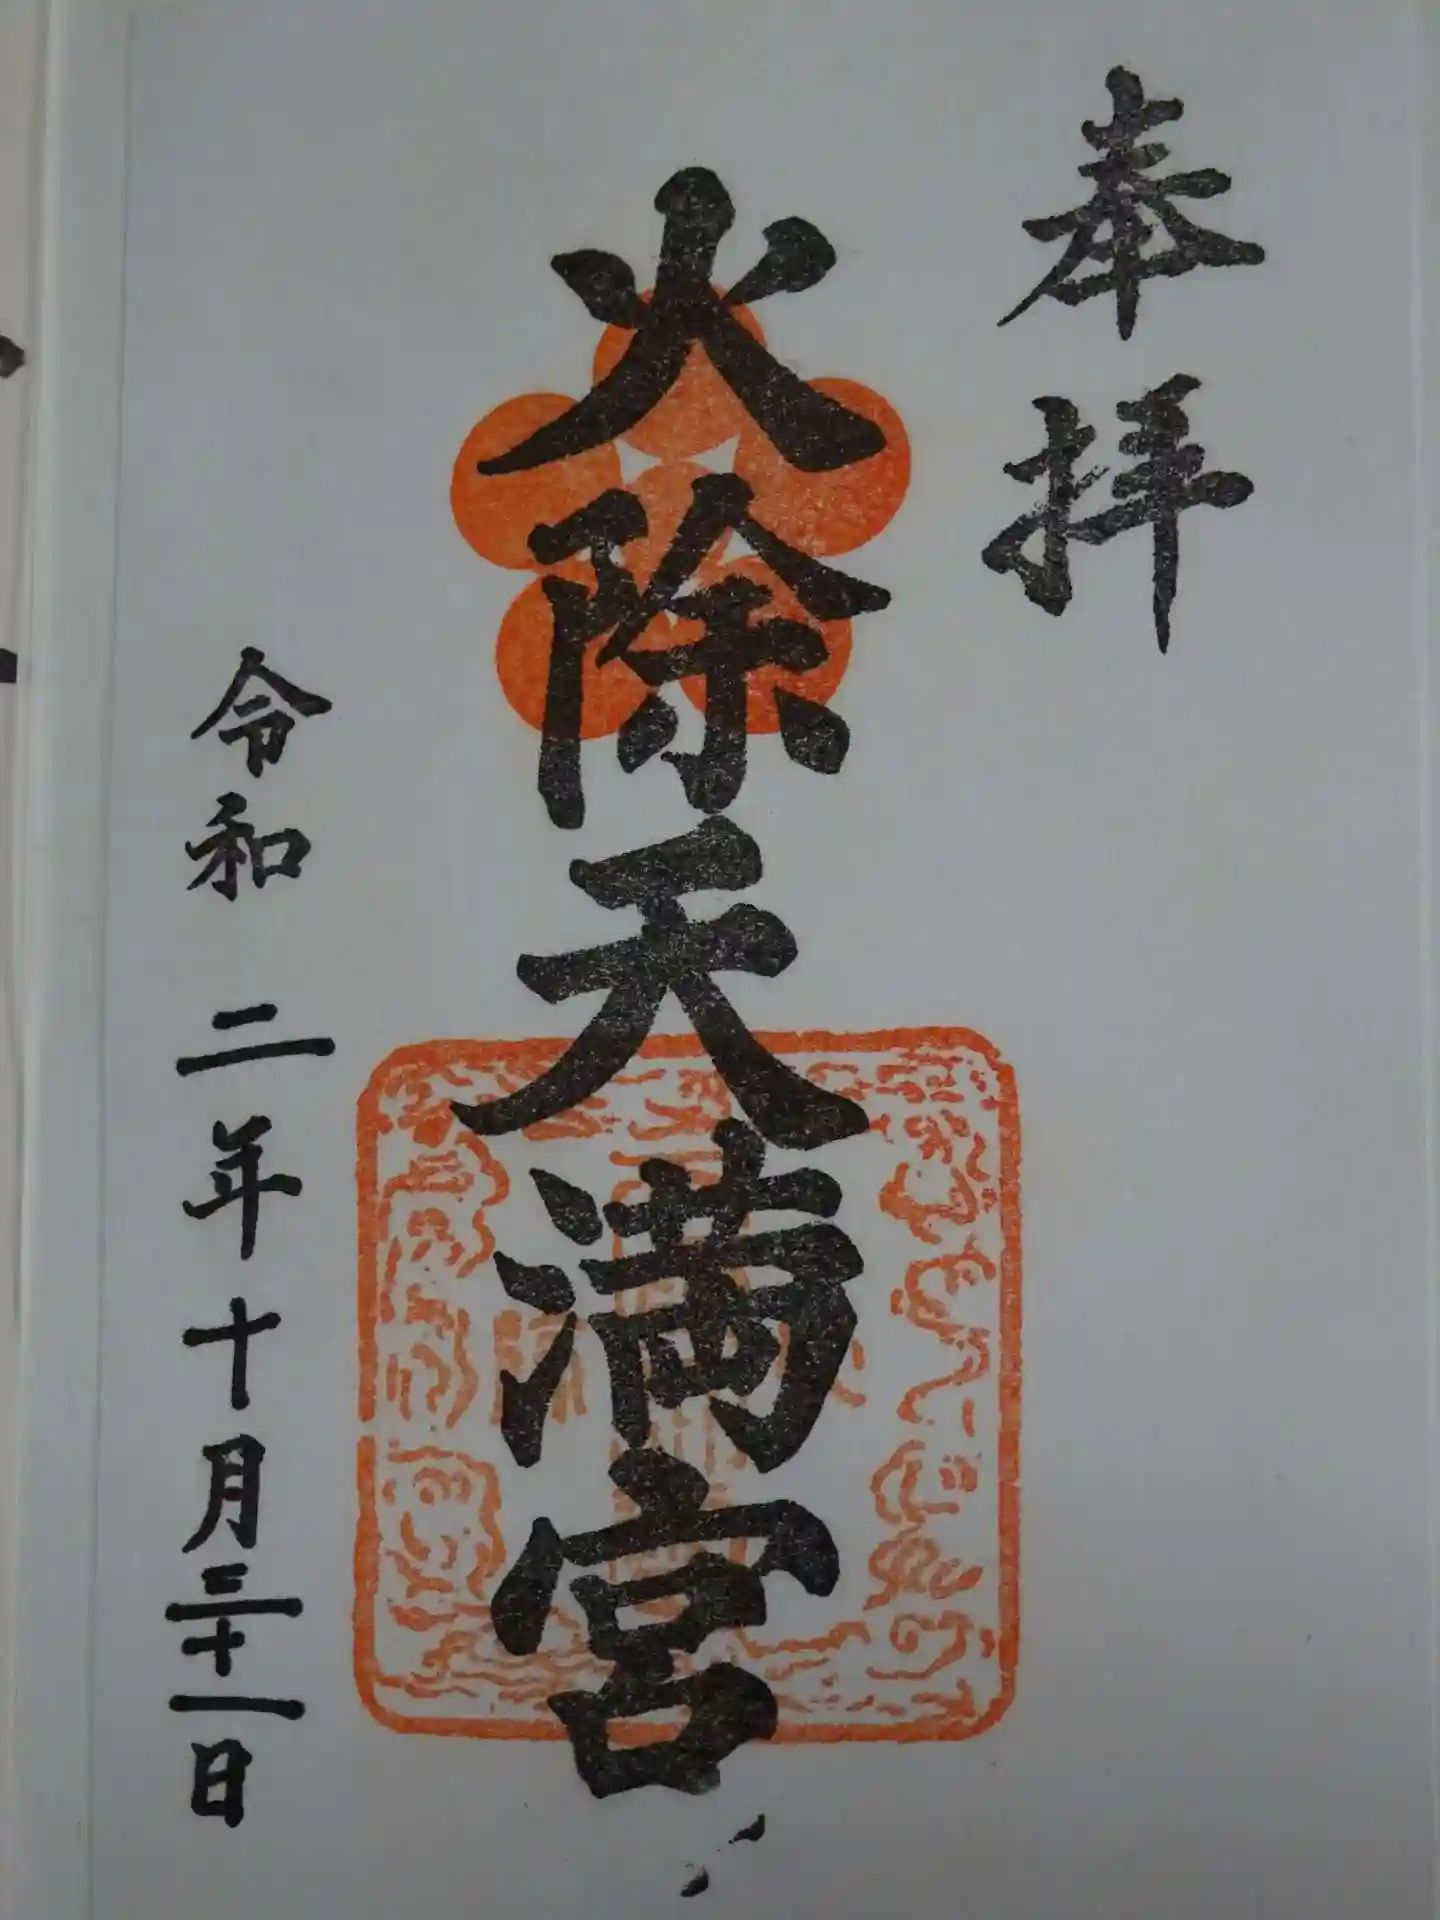 奉拝
火除天満宮
令和二年十月三十一日